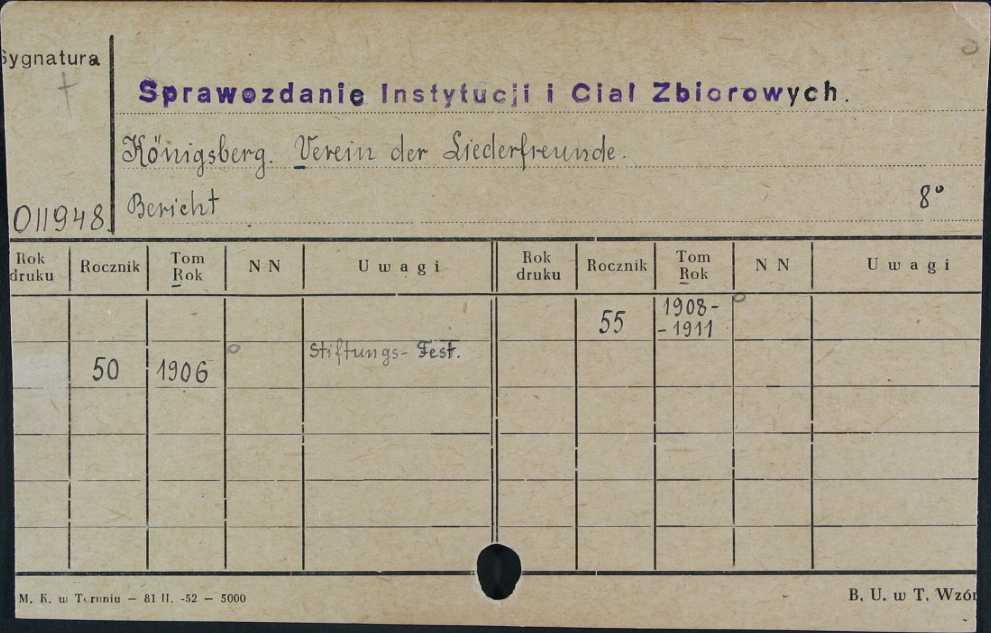 Sygnatura
Sprawozdanie Instytucji i Ciał Zbiorowych.
Königsberg. Verein der Liederfreunde.
Bericht 8°
011948.
Rok druku Rocznik Tom Rok NN Uwagi Rok druku Rocznik Tom Rok NN Uwagi
55 1908-
-1911
50 1906 Stiftungs-Fest.
M. K. w Toruniu — 81 II. -52 — 5000 B. U. w T. Wzór